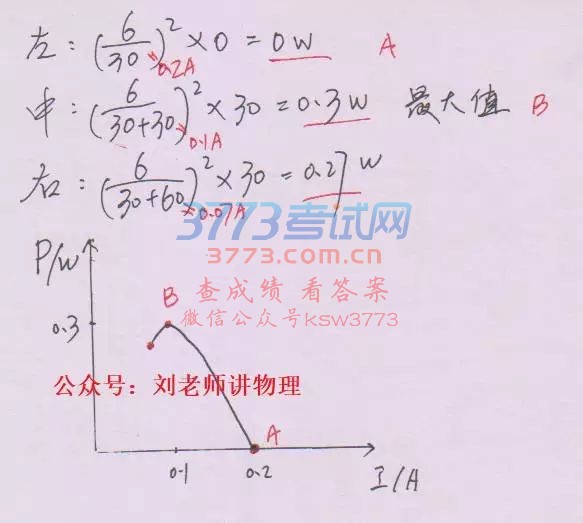 左：(6/30)²×0=0W A
0.2A
中：(6/30+30)²×30=0.3W 最大值 B
0.1A
右：(6/30+60)²×30=0.27W
0.07A
3773考试网
3773.com.cn
查成绩 看答案
微信公众号ksw3773
P/W
B
0.3
公众号：刘老师讲物理
A
0.1 0.2 I/A